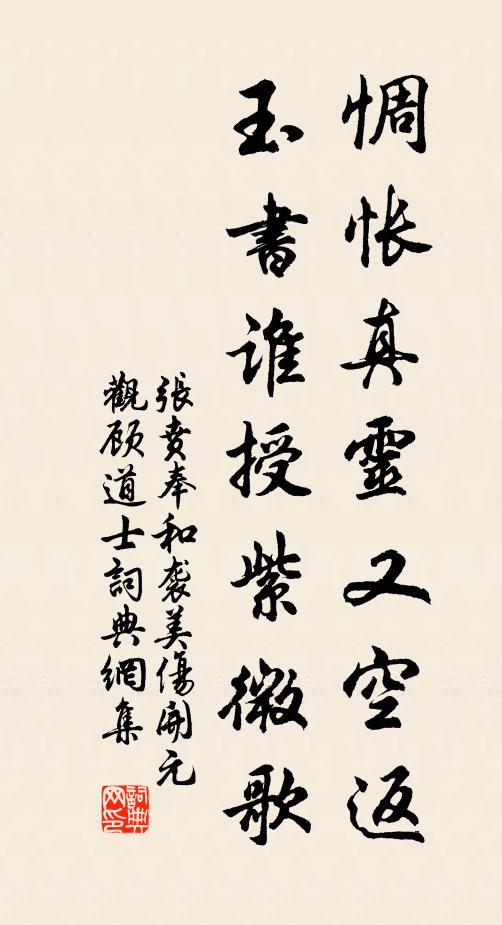 惆怅真靈又空返
玉書誰授紫微歌
張賁奉和袭美傷開元
觀顾道士詞典網集
詞典
网印